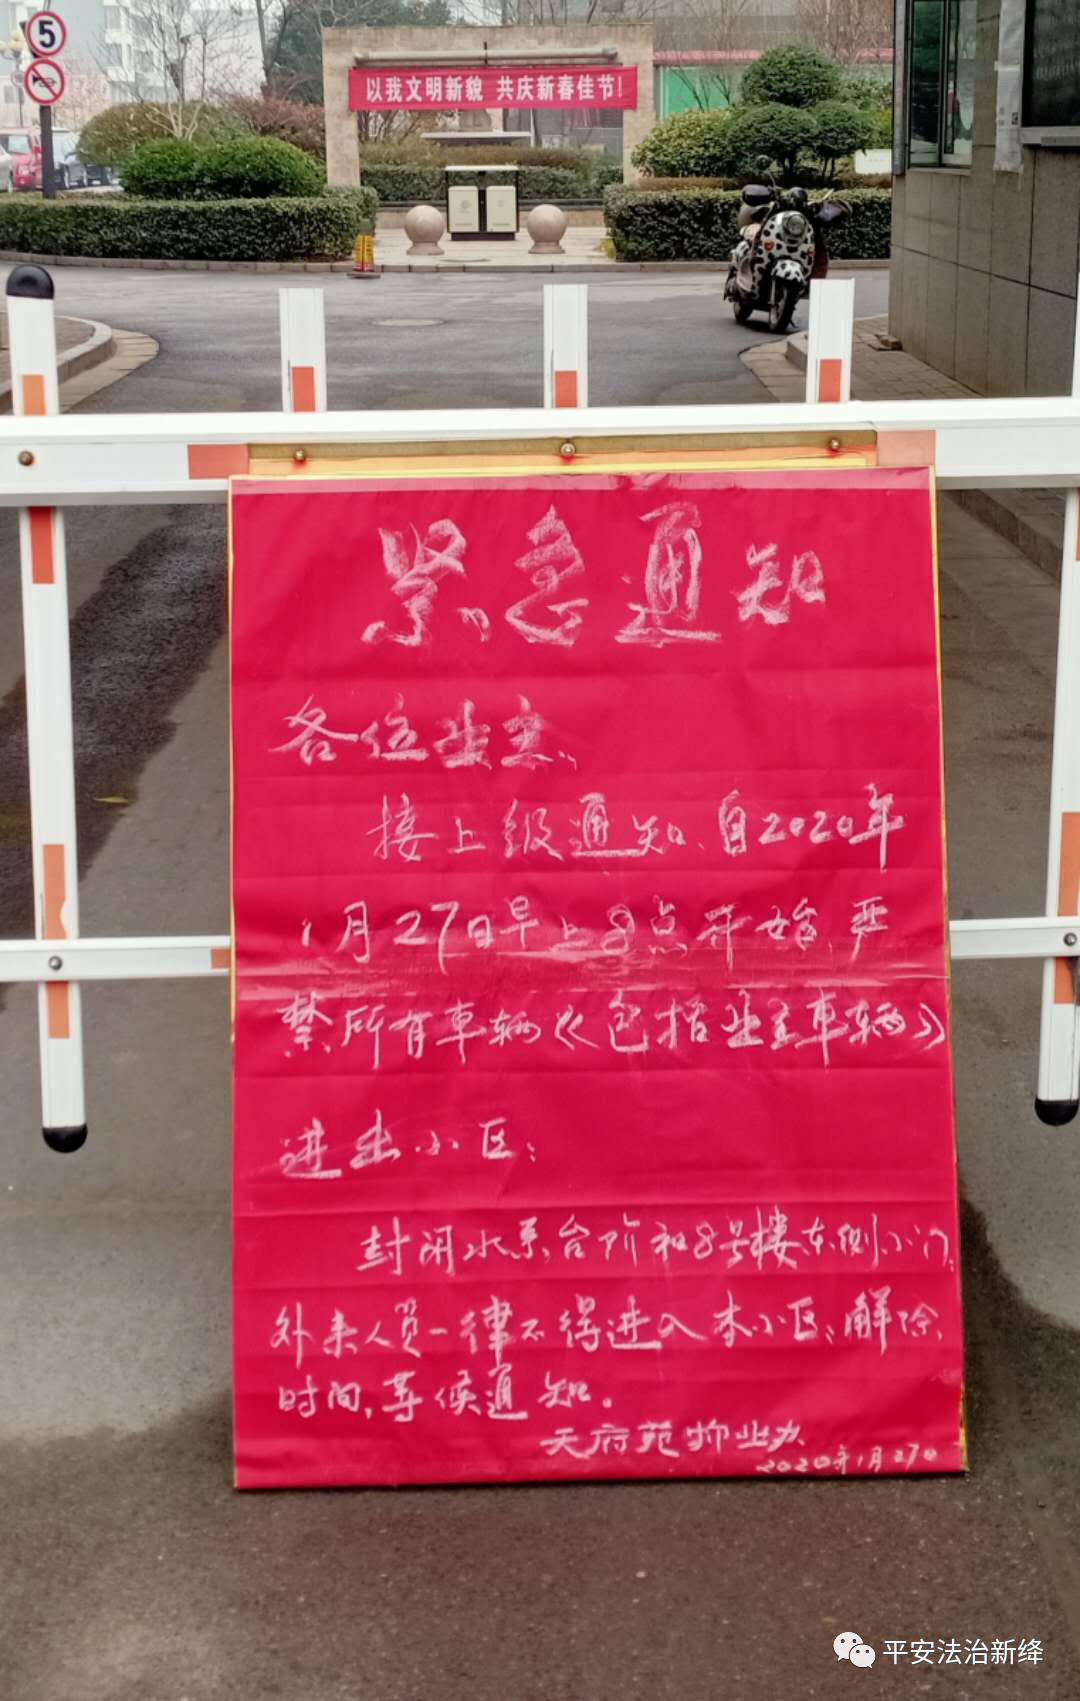 5
以我文明新貌 共庆新春佳节!
紧急通知
各位业主:
接上级通知、自2020年
1月27日早上8点开始,严
禁所有车辆《包括业主车辆》
进出小区;
封闭水系台阶和8号楼东侧小门;
外来人员一律不得进入本小区;解除
时间,等候通知。
天府苑物业办
2020年1月27日
平安法治新绛